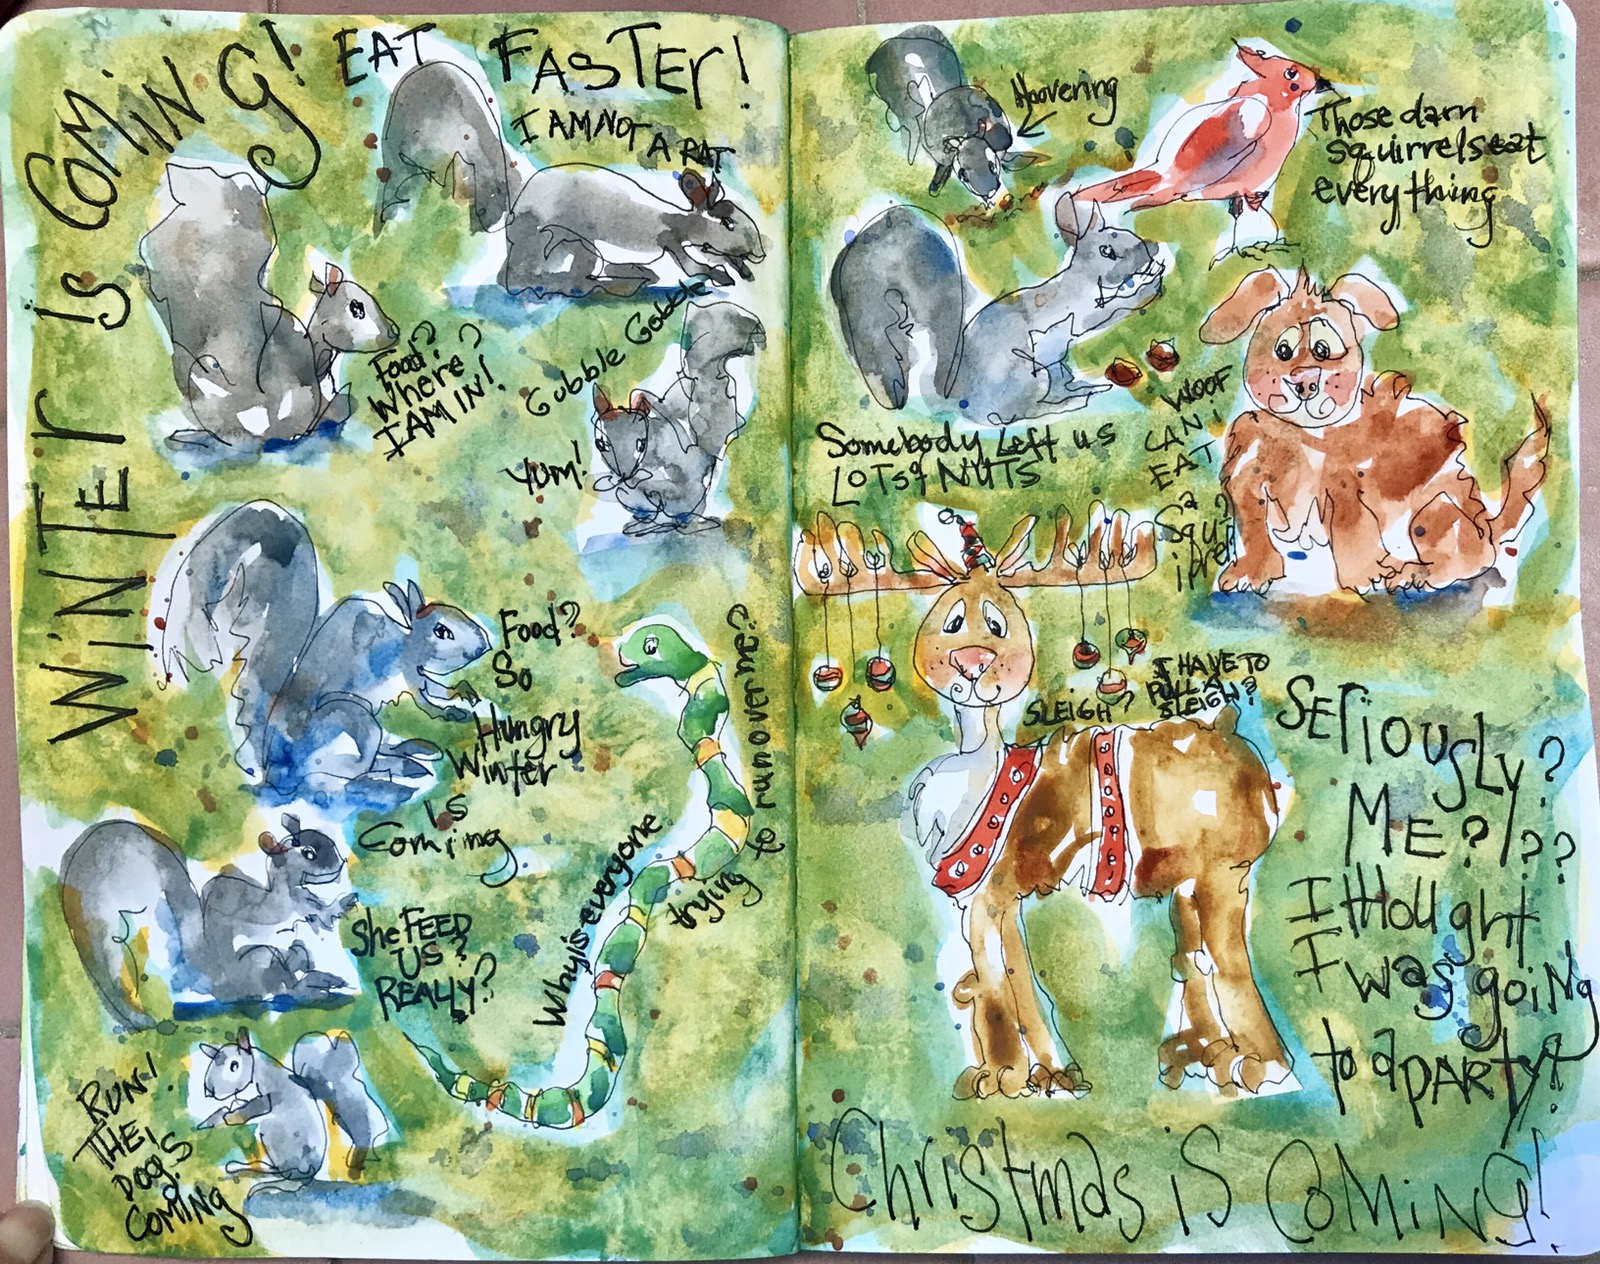 WiNTEr is COMiNG!
EAT FASTEr!
I AM NOT A RAT
Food?
Where?
I AM IN!
Gobble Gobble
YUM!
Food?
So
Hungry
Winter
is
Coming
She FEED
US?
REALLY?
Why is everyone trying to run over me?
RUN!
THE
DOG IS
COMING
Hoovering
Those darn
squirrels eat
everything
Somebody Left us
LOTS of NUTS
WOOF
CAN I
EAT
a
Squ
irrel?
SLEIGH?
I HAVE TO
PULL A
SLEIGH?
SEriOUsLy?
ME?!??
I thought
I was going
to a PARTY?!
Christmas is COMiNG!